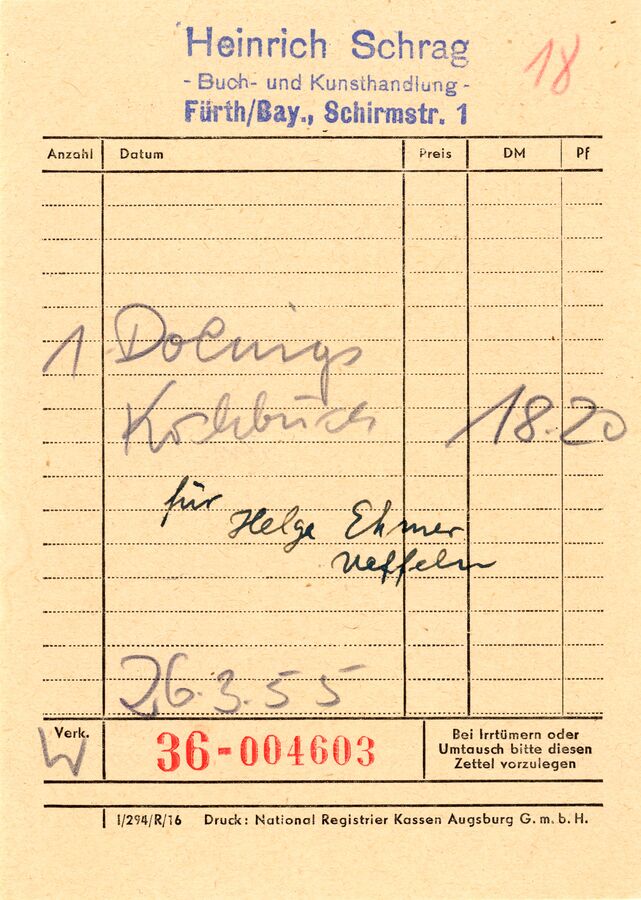 Heinrich Schrag
18
- Buch- und Kunsthandlung -
Fürth/Bay., Schirmstr. 1
Anzahl Datum Preis DM Pf
1
Kochbuch 18.20
für
Helge Ehmer
26.3.55
Verk. W 36-004603
Bei Irrtümern oder
Umtausch bitte diesen
Zettel vorzulegen
I/294/R/16 Druck: National Registrier Kassen Augsburg G.m.b.H.